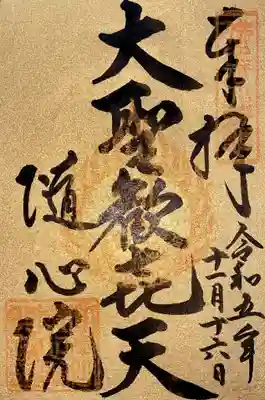 奉拝
令和五年
十一月十六日
大聖歓喜天
随心院